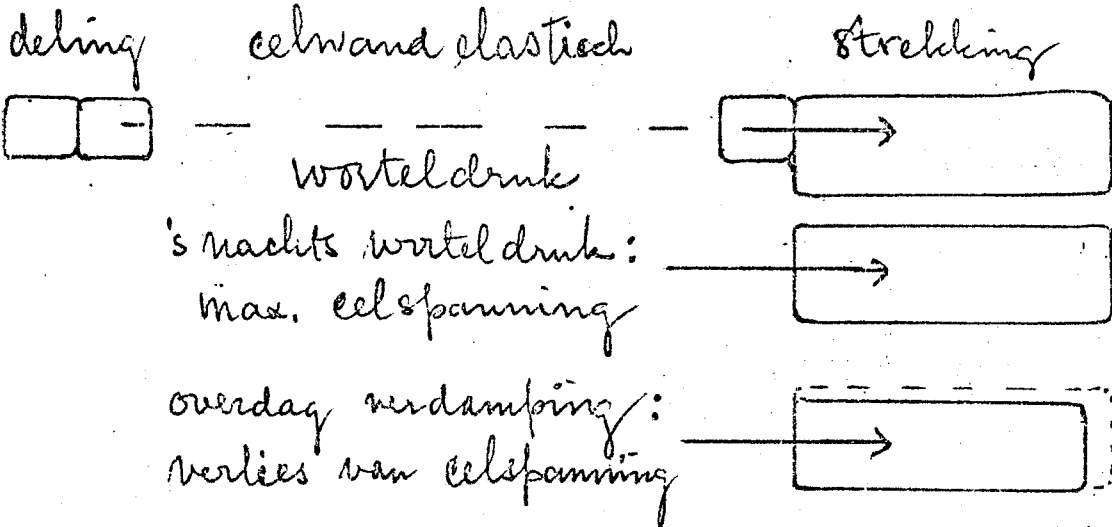 deling celwand elastisch strekking
worteldruk
's nachts worteldruk:
max. celspanning
overdag verdamping:
verlies van celspanning